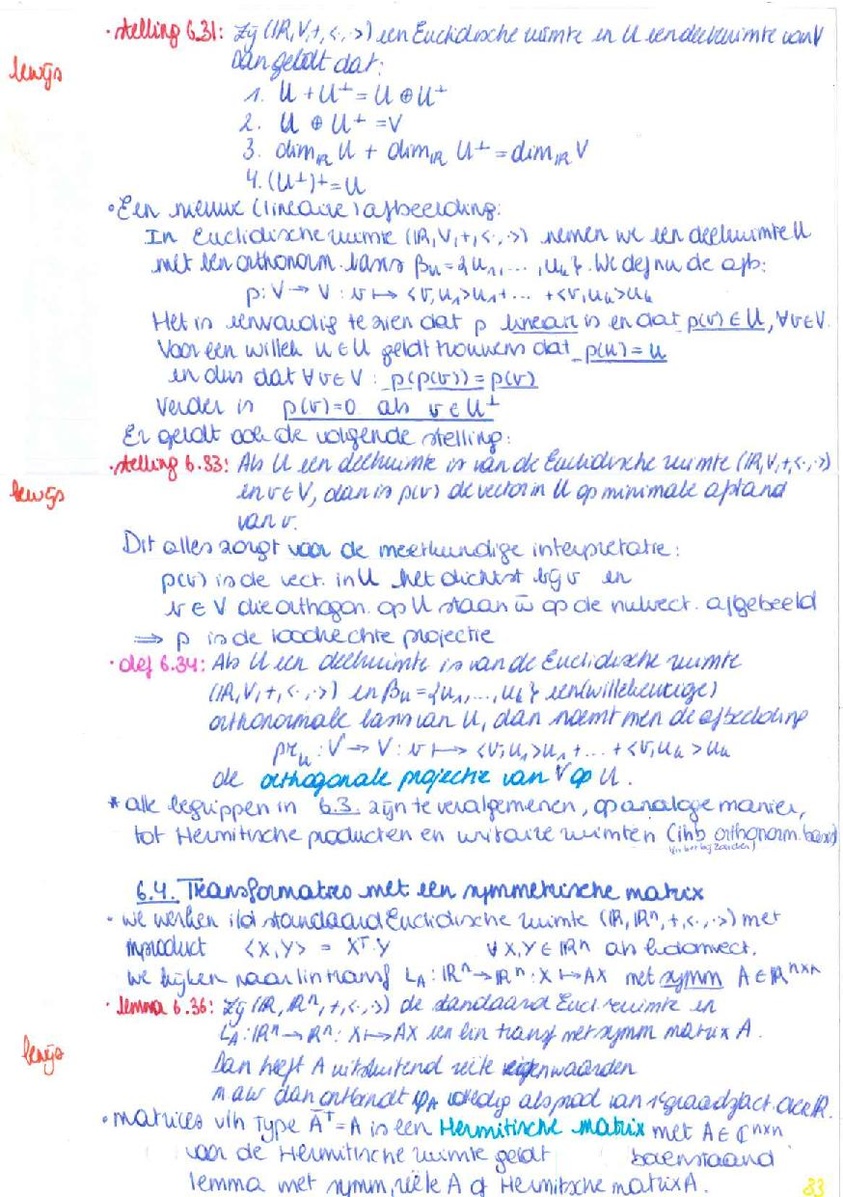 · stelling 6.31: Zij (ℝ,V,+,<·,·>) een Euclidische ruimte en U een deelruimte van V
bewijs
Dan geldt dat:
1. U + U^⊥ = U ⊕ U^⊥
2. U ⊕ U^⊥ = V
3. dim_ℝ U + dim_ℝ U^⊥ = dim_ℝ V
4. (U^⊥)^⊥ = U
· Een nieuwe (lineaire) afbeelding:
In Euclidische ruimte (ℝ,V,+,<·,·>) nemen we een deelruimte U
met een orthonorm. basis β_U = {u_1, ..., u_k}. We def nu de afb:
p: V → V : v ↦ <v,u_1>u_1 + ... + <v,u_k>u_k
Het is eenvoudig te zien dat p lineair is en dat p(v) ∈ U, ∀v∈V.
Voor een willek u ∈ U geldt trouwens dat p(u) = u
en dus dat ∀v∈V : p(p(v)) = p(v)
Verder is p(v)=0 als v ∈ U^⊥
Er geldt ook de volgende stelling:
· stelling 6.33: Als U een deelruimte is van de Euclidische ruimte (ℝ,V,+,<·,·>)
bewijs
en v∈V, dan is p(v) de vector in U op minimale afstand
van v.
Dit alles zorgt voor de meetkundige interpretatie:
p(v) is de vect. in U het dichtst bij v en
v ∈ V die orthogon. op U staan w op de nulvect. afgebeeld
⟹ p is de loodrechte projectie
· def 6.34: Als U een deelruimte is van de Euclidische ruimte
(ℝ,V,+,<·,·>) en β_U = {u_1, ..., u_k} een (willekeurige)
orthonormale basis van U, dan noemt men de afbeelding
pr_U : V → V : v ↦ <v,u_1>u_1 + ... + <v,u_k>u_k
de orthogonale projectie van V op U.
* alle begrippen in 6.3. zijn te veralgemenen, op analoge manier,
tot Hermitische producten en unitaire ruimten (ihb orthonorm. basis)
6.4. Transformaties met een symmetrische matrix
· we werken i/d standaard Euclidische ruimte (ℝ,ℝ^n,+,<·,·>) met
inproduct <X,Y> = X^T·Y ∀X,Y ∈ ℝ^n als kolomvect.
we kijken naar lin transf L_A : ℝ^n → ℝ^n : X ↦ AX met symm A ∈ ℝ^{n×n}
· lemma 6.36: Zij (ℝ,ℝ^n,+,<·,·>) de standaard Eucl. ruimte en
L_A : ℝ^n → ℝ^n : X ↦ AX een lin transf met symm matrix A.
bewijs
Dan heeft A uitsluitend reële eigenwaarden
m a w dan ontbindt φ_A volledig als prod van 1^e graadsfact. over ℝ.
· matrices v/h type Ā^T = A is een Hermitische matrix met A ∈ ℂ^{n×n}
voor de Hermitische ruimte geldt bovenstaand
lemma met symm, reële A of Hermitische matrix A.
83